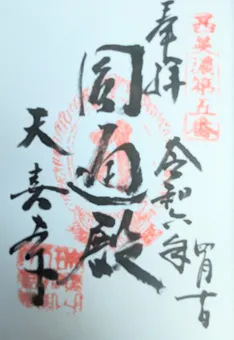 西美濃第五番
奉拝
令和六年
四月吉
圓通殿
天喜寺